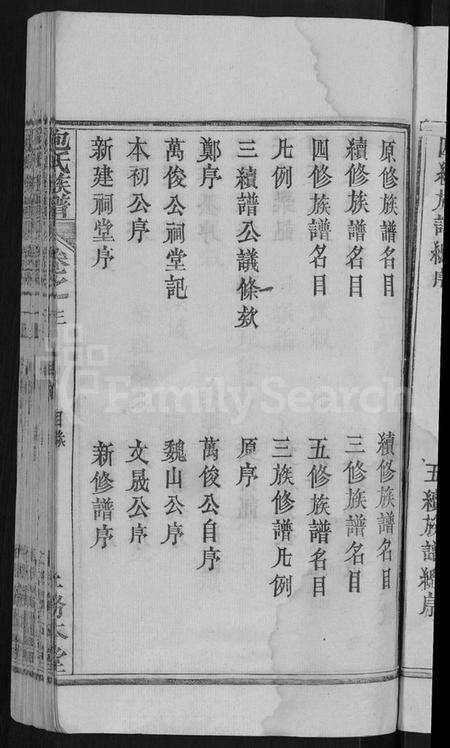 四續族譜總序
五續族譜總序
原修族譜名目
續修族譜名目
續修族譜名目
三修族譜名目
四修族譜名目
五修族譜名目
凡例
三族修譜凡例
三續譜公議條欵
原序
鄭序
萬俊公自序
萬俊公祠堂記
魏山公序
本初公序
文晟公序
新建祠堂序
新修譜序
包氏族譜
卷之一
目錄
務本堂
FamilySearch